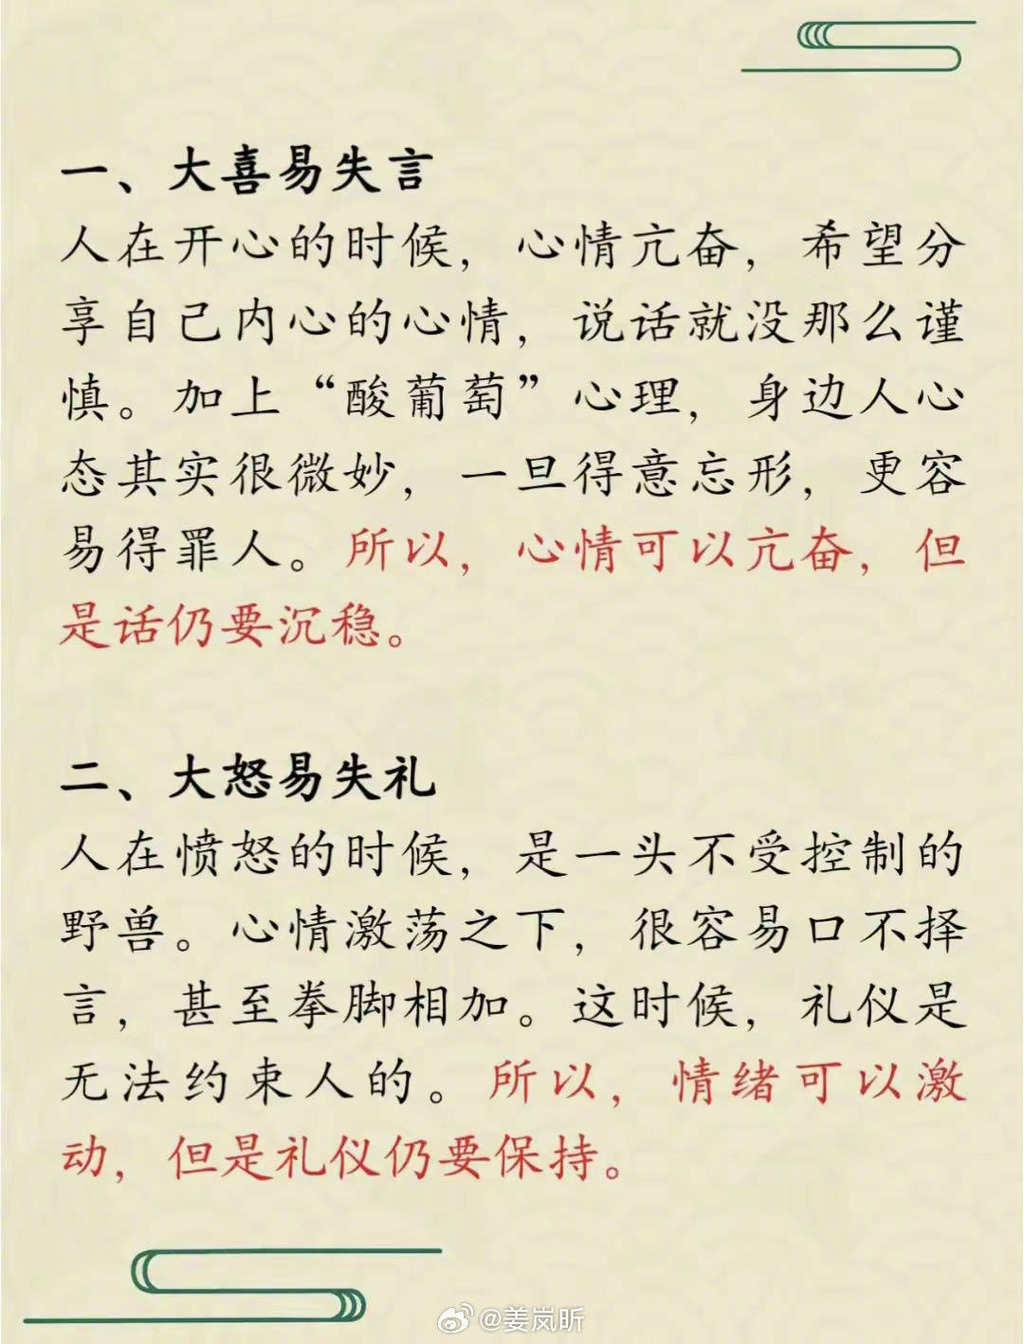 一、大喜易失言
人在开心的时候，心情亢奋，希望分
享自己内心的心情，说话就没那么谨
慎。加上“酸葡萄”心理，身边人心
态其实很微妙，一旦得意忘形，更容
易得罪人。所以，心情可以亢奋，但
是话仍要沉稳。
二、大怒易失礼
人在愤怒的时候，是一头不受控制的
野兽。心情激荡之下，很容易口不择
言，甚至拳脚相加。这时候，礼仪是
无法约束人的。所以，情绪可以激
动，但是礼仪仍要保持。
@姜岚昕